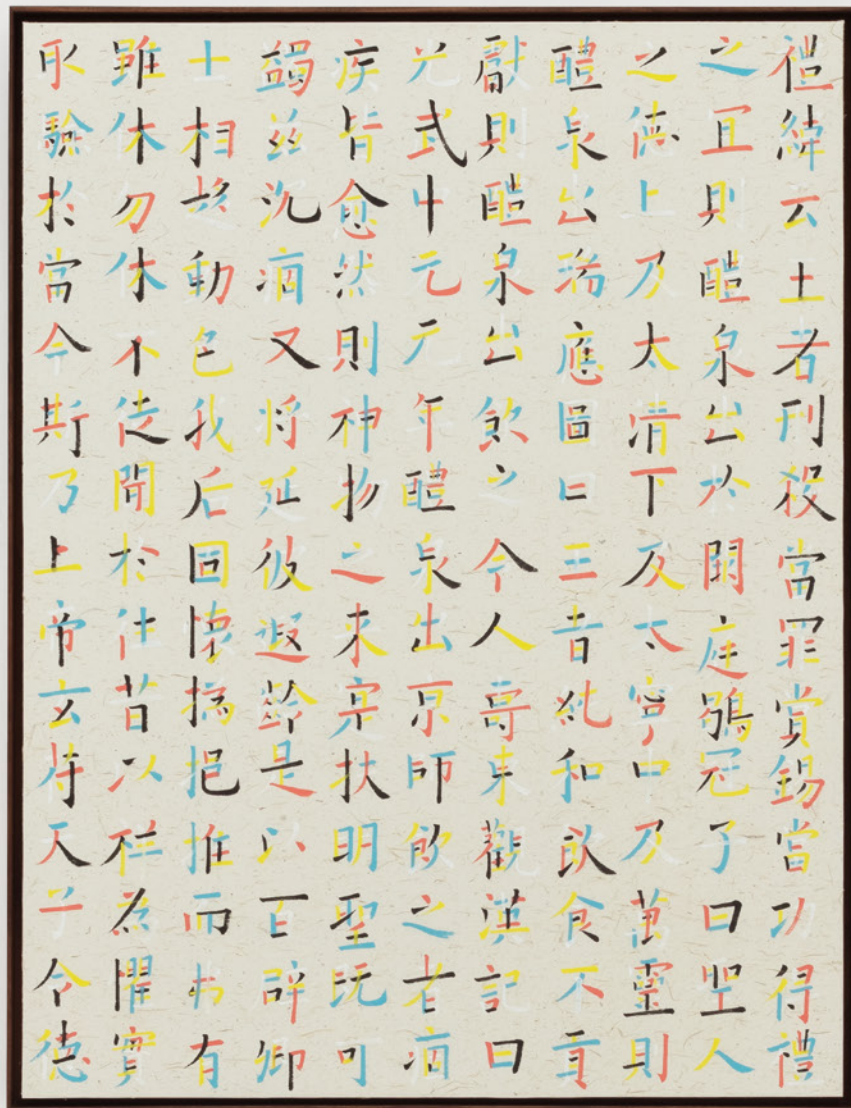 禮緯云王者刑殺當罪賞錫當功得禮
之宜則醴泉出於闕庭鶡冠子曰聖人
之德上及太清下及太寧中及萬靈則
醴泉出瑞應圖曰王者純和飲食不貢
獻則醴泉出飲之令人壽東觀漢記曰
光武中元元年醴泉出京師飲之者痼
疾皆愈然則神物之來寔扶明聖既可
蠲茲沉痼又將延彼遐齡是以百辟卿
士相趍動色我后固懷撝挹推而弗有
雖休勿休不徒聞於往昔以祥為懼實
取驗於當今斯乃上帝玄符天子令德